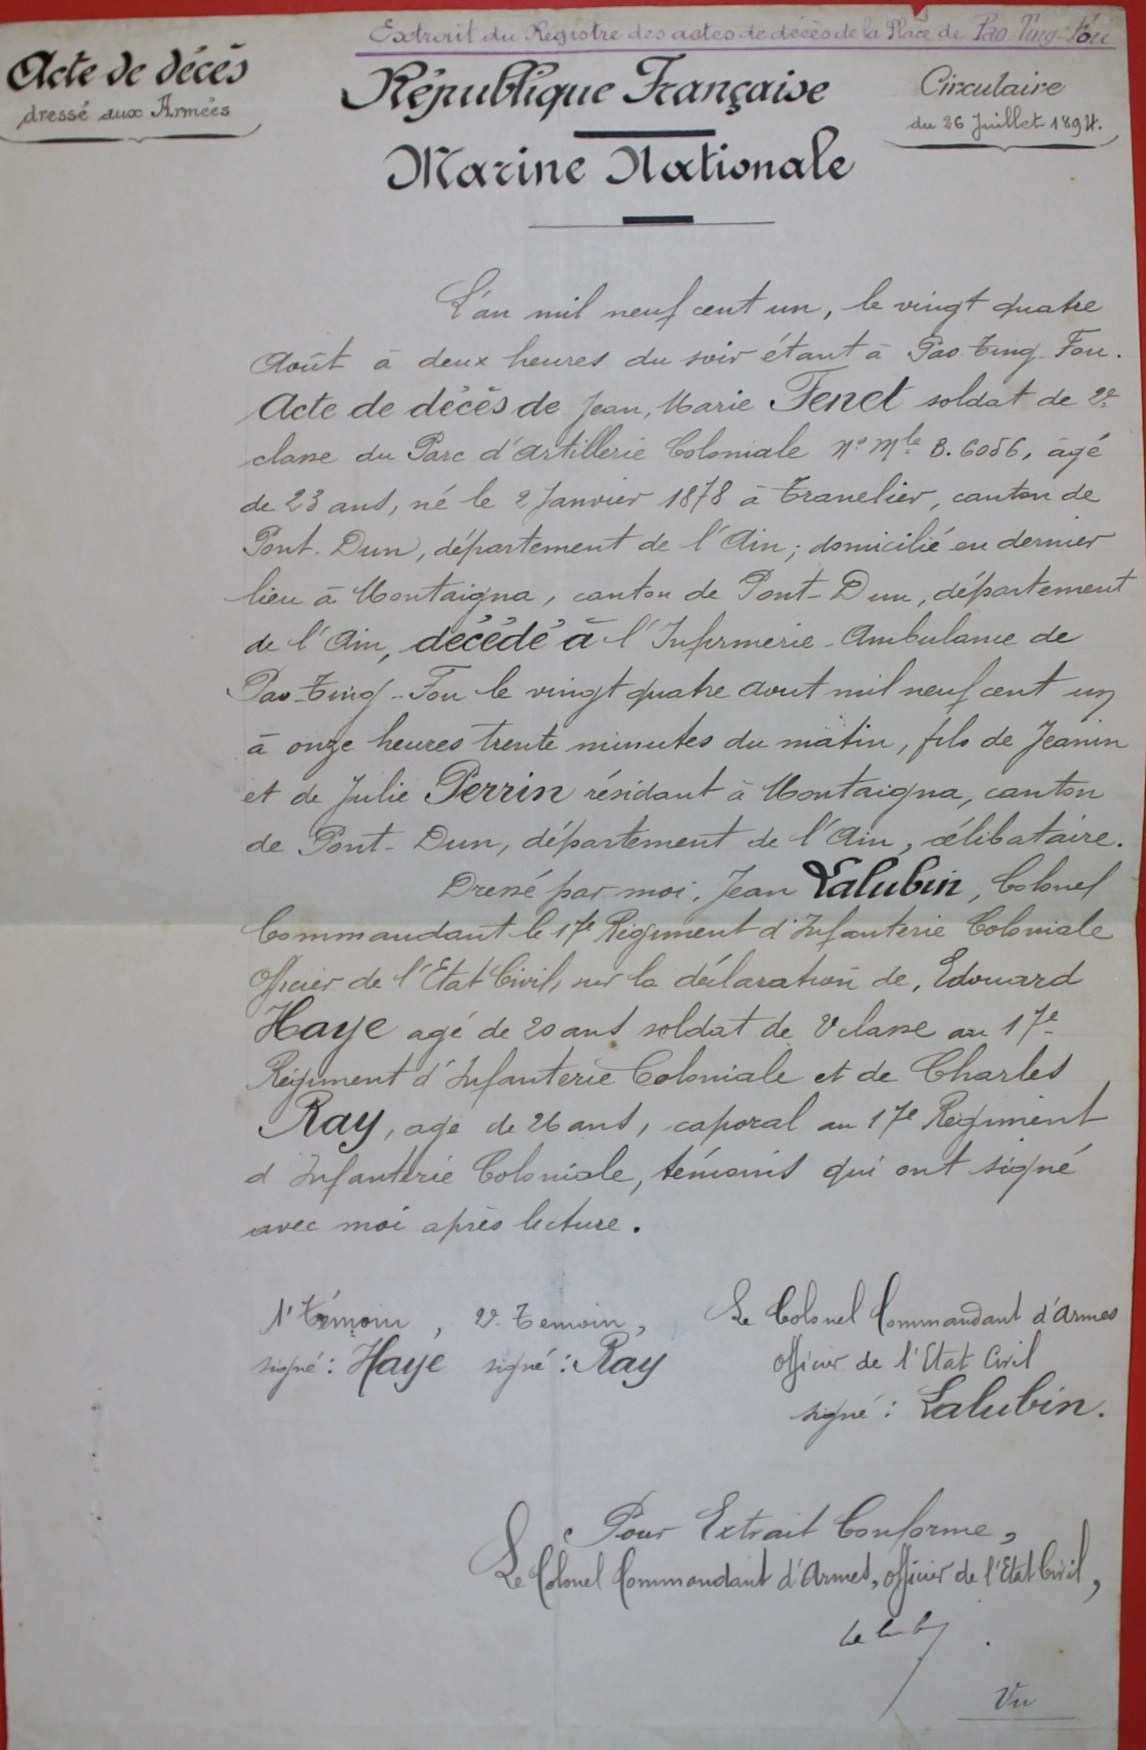 Extrait du Registre des actes de décès de la Place de Pao-Ting-Fou
Acte de décès
dressé aux Armées
République Française
Circulaire
du 26 Juillet 1894.
Marine Nationale
L'an mil neuf cent un, le vingt quatre
Août à deux heures du soir étant à Pao-Ting-Fou.
Acte de décès de Jean, Marie Fenet soldat de 2e
classe du Parc d'artillerie Coloniale No Mle B. 6056, âgé
de 23 ans, né le 2 Janvier 1878 à Tranelier, canton de
Pont-Dun, département de l'Ain; domicilié en dernier
lieu à Montaigna, canton de Pont-Dun, département
de l'Ain, décédé à l'Infirmerie-Ambulance de
Pao-Ting-Fou le vingt quatre aout mil neuf cent un
à onze heures trente minutes du matin, fils de Jeanin
et de Julie Perrin résidant à Montaigna, canton
de Pont-Dun, département de l'Ain, célibataire.
Dressé par moi, Jean Lalubin, Colonel
Commandant le 17e Régiment d'Infanterie Coloniale
Officier de l'Etat Civil, sur la déclaration de, Edouard
Haye agé de 20 ans soldat de 2e classe au 17e
Régiment d'Infanterie Coloniale et de Charles
Ray, age de 26 ans, caporal au 17e Régiment
d'Infanterie Coloniale, témoins qui ont signé
avec moi après lecture.
1r Témoin, 2e Temoin, Le Colonel Commandant d'Armes
signé: Haye signé: Ray Officier de l'Etat Civil
signé: Lalubin.
Pour Extrait Conforme,
Le Colonel Commandant d'Armes, Officier de l'Etat Civil,
Lalubin
Vu